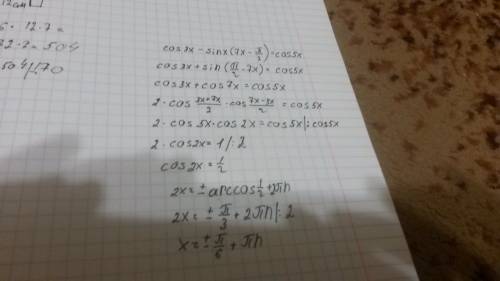 12 см
6 · 12 · 7 =
12 · 7 = 504
504
cos3x - sinx(7x - π/2) = cos5x
cos3x + sin(π/2 - 7x) = cos5x
cos3x + cos7x = cos5x
2 · cos (3x+7x)/2 · cos (7x-3x)/2 = cos5x
2 · cos 5x · cos 2x = cos5x |: cos5x
2 · cos2x = 1 /: 2
cos2x = 1/2
2x = ± arccos 1/2 + 2πn
2x = ± π/3 + 2πn |: 2
x = ± π/6 + πn